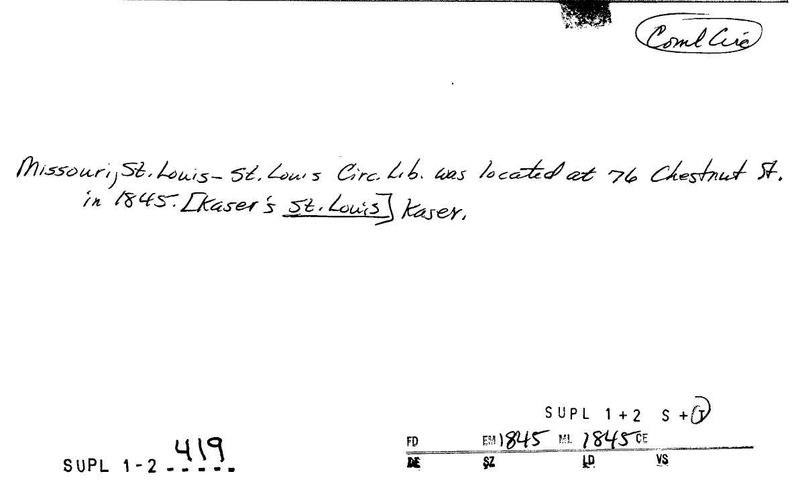 Coml Circ
Missouri, St. Louis - St. Louis Circ. Lib. was located at 76 Chestnut St.
in 1845. [Kaser's St. Louis] Kaser.
SUPL 1+2 S + I
FD EM 1845 ML 1845 CE
SUPL 1-2 419
DE SZ LD VS